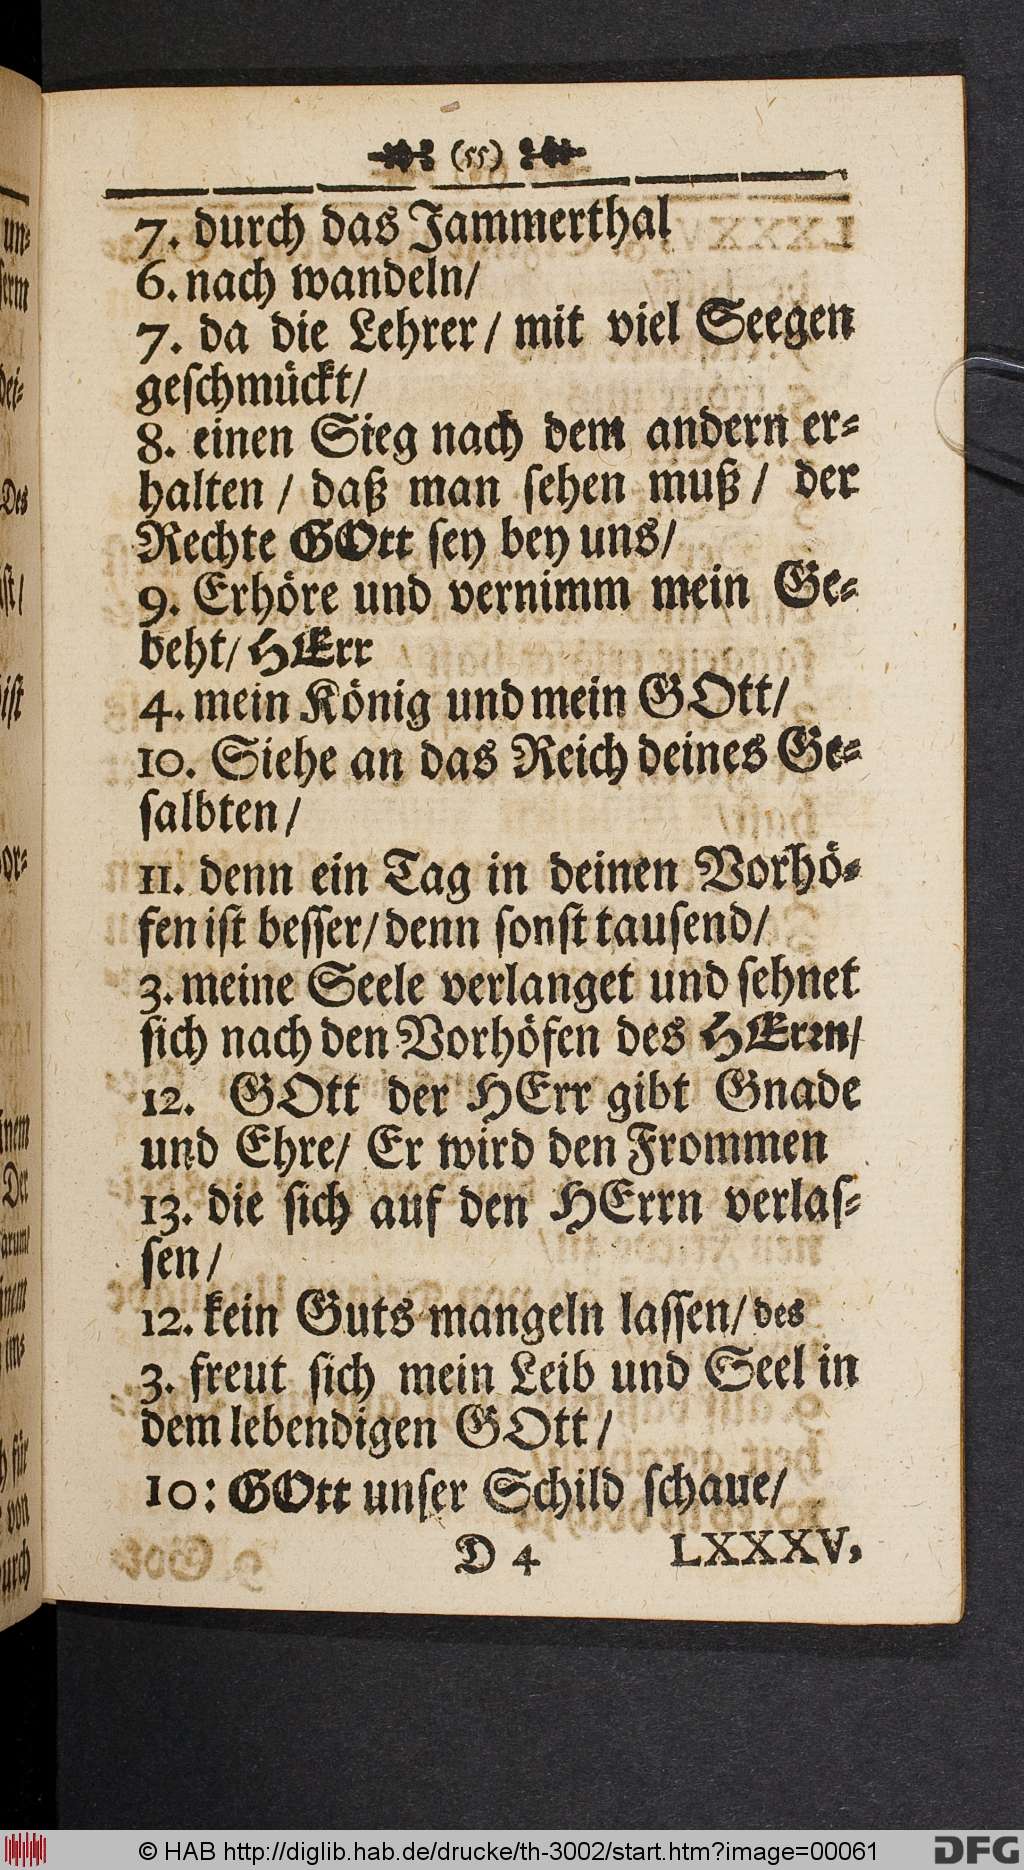 (55)
7. durch das Jammerthal
6. nach wandeln/
7. da die Lehrer/ mit viel Seegen
geschmückt/
8. einen Sieg nach dem andern er-
halten / daß man sehen muß / der
Rechte GOtt sey bey uns/
9. Erhöre und vernimm mein Ge-
beht/ HErr
4. mein König und mein GOtt/
10. Siehe an das Reich deines Ge-
salbten /
11. denn ein Tag in deinen Vorhö-
fen ist besser/ denn sonst tausend/
3. meine Seele verlanget und sehnet
sich nach den Vorhöfen des HErrn/
12. GOtt der HErr gibt Gnade
und Ehre/ Er wird den Frommen
13. die sich auf den HErrn verlas-
sen /
12. kein Guts mangeln lassen/ des
3. freut sich mein Leib und Seel in
dem lebendigen GOtt /
10: GOtt unser Schild schaue/
D 4 LXXXV,
© HAB http://diglib.hab.de/drucke/th-3002/start.htm?image=00061
DFG